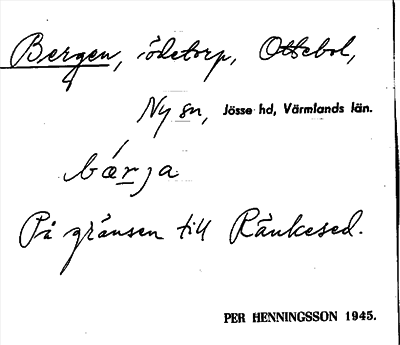 Bergen, ödetorp, Ottebol,
Ny sn, Jösse hd, Värmlands län.
bǽrja
På gränsen till Ränkesed.
PER HENNINGSSON 1945.